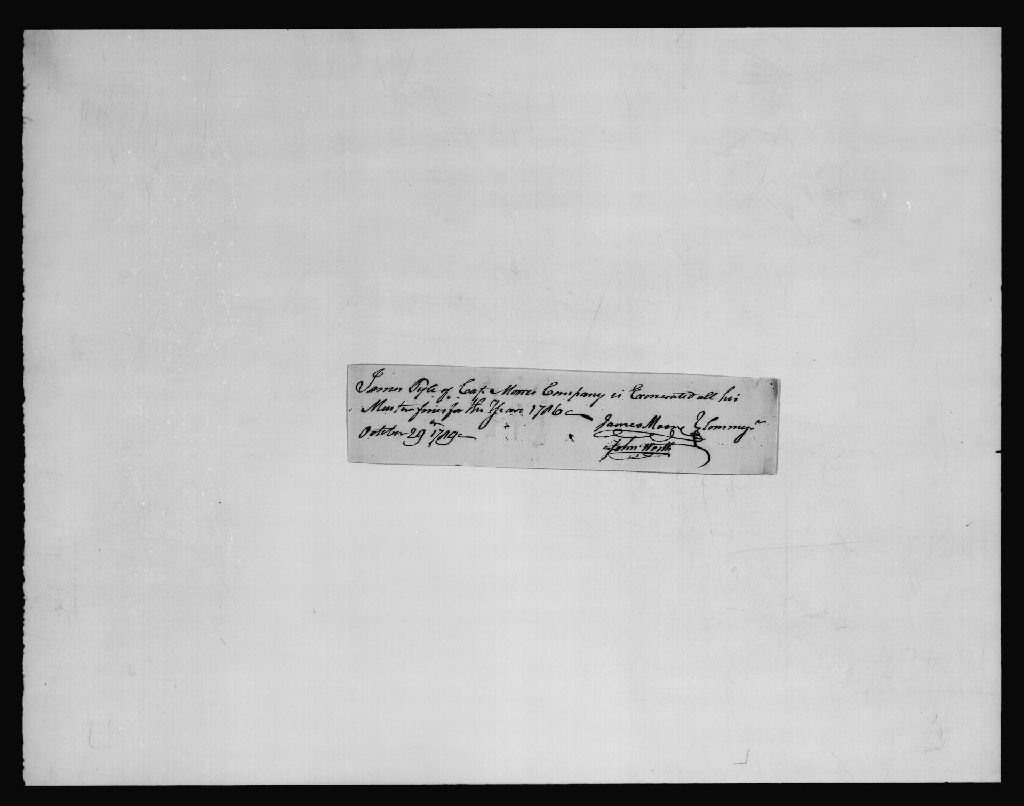 James Pyle of Capt. Morris Company is Exonerated all his
Muster fines for the Years 1786
October 29th 1789
James Moore
John Worth
Commrs